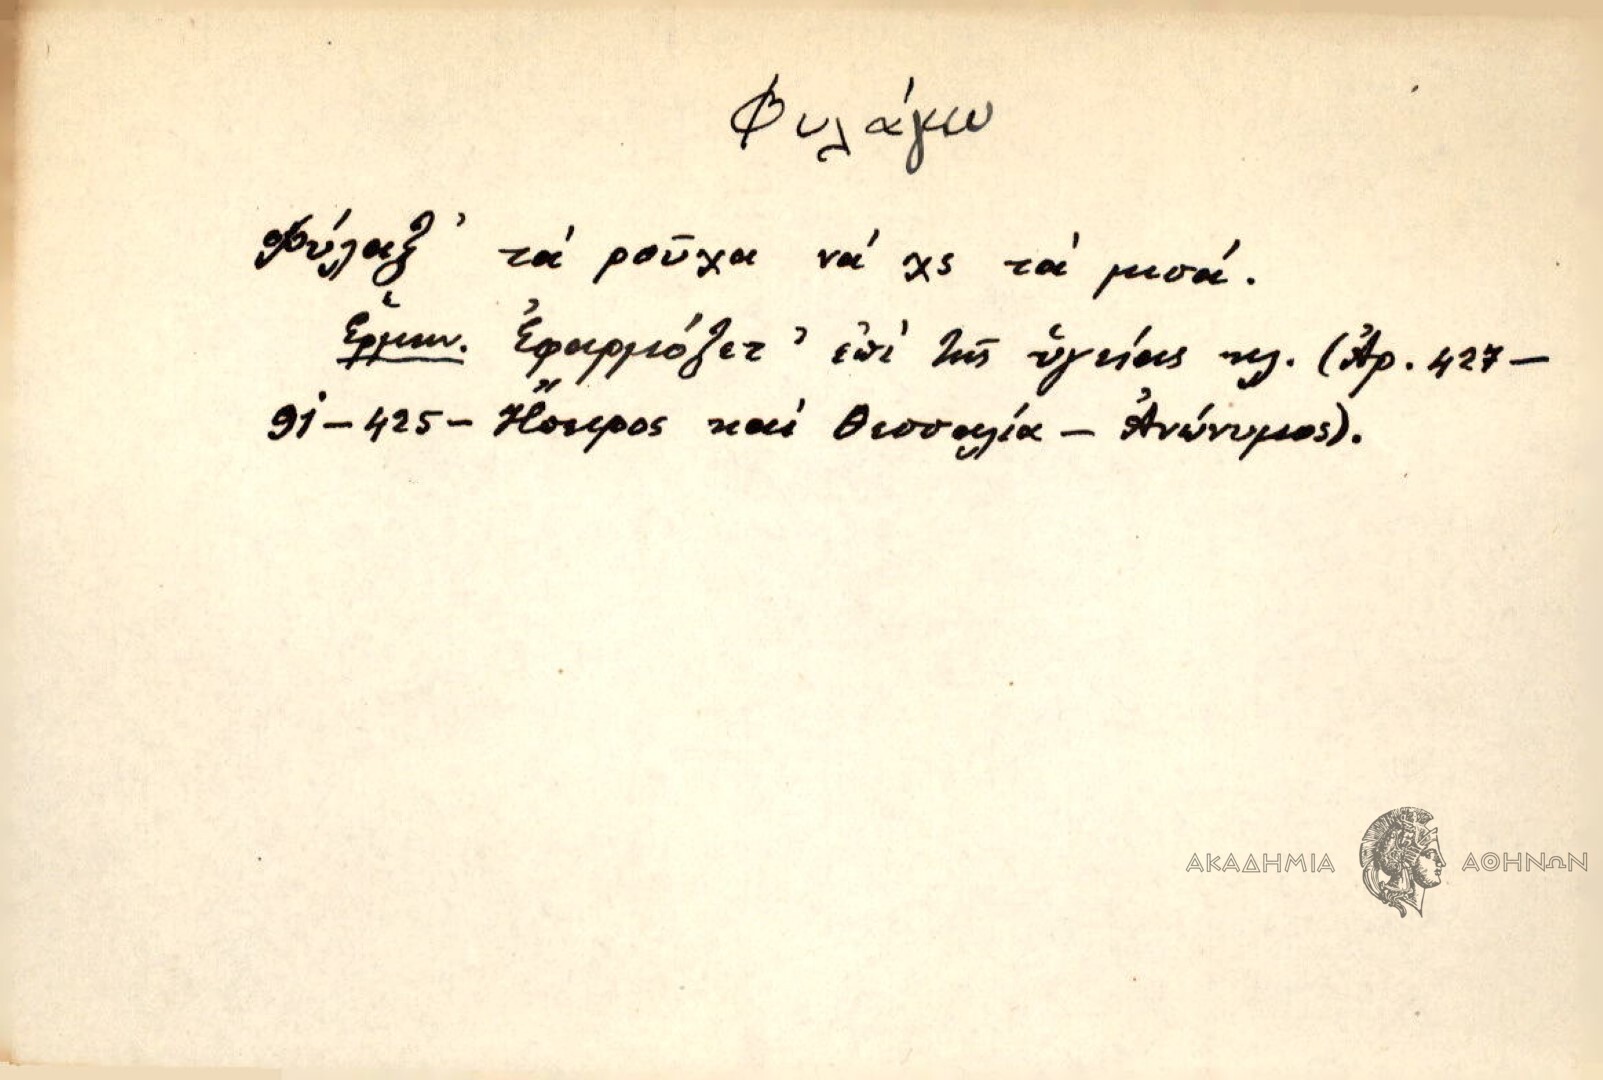 Φυλάγω
Φύλαξ' τά ροῦχα νά χς τά μισά.
Ἑρμην. Ἐφαρμόζετ' ἐπί τῆς ὑγείας κλ. (Ἀρ. 427 –
91 – 425 – Ἤπειρος καί Θεσσαλία – Ἀνώνυμος).
ΑΚΑΔΗΜΙΑ ΑΘΗΝΩΝ